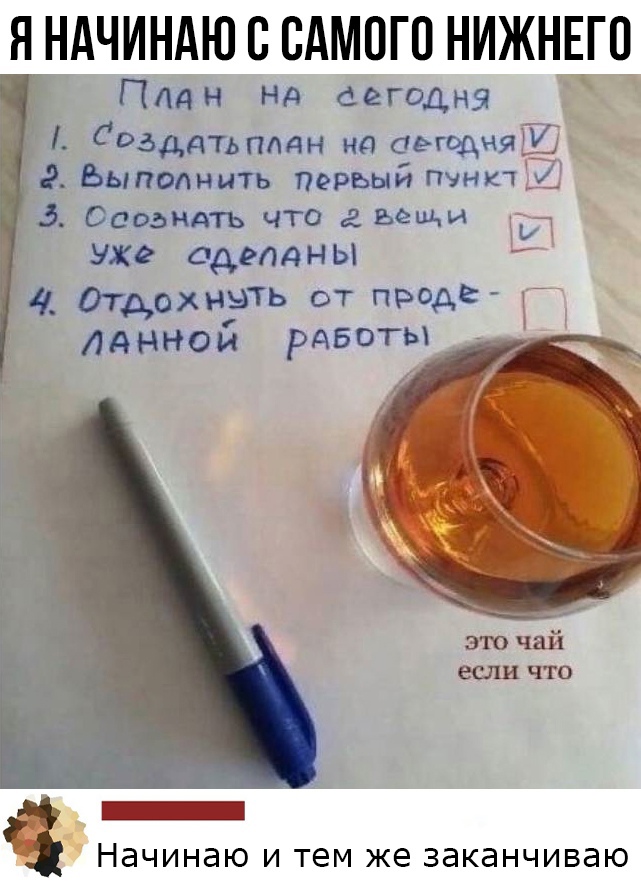 Я НАЧИНАЮ С САМОГО НИЖНЕГО
План на сегодня
1. Создать план на сегодня V
2. Выполнить первый пункт V
3. Осознать что 2 вещи V
уже сделаны
4. Отдохнуть от проде-
ланной работы
это чай
если что
Начинаю и тем же заканчиваю